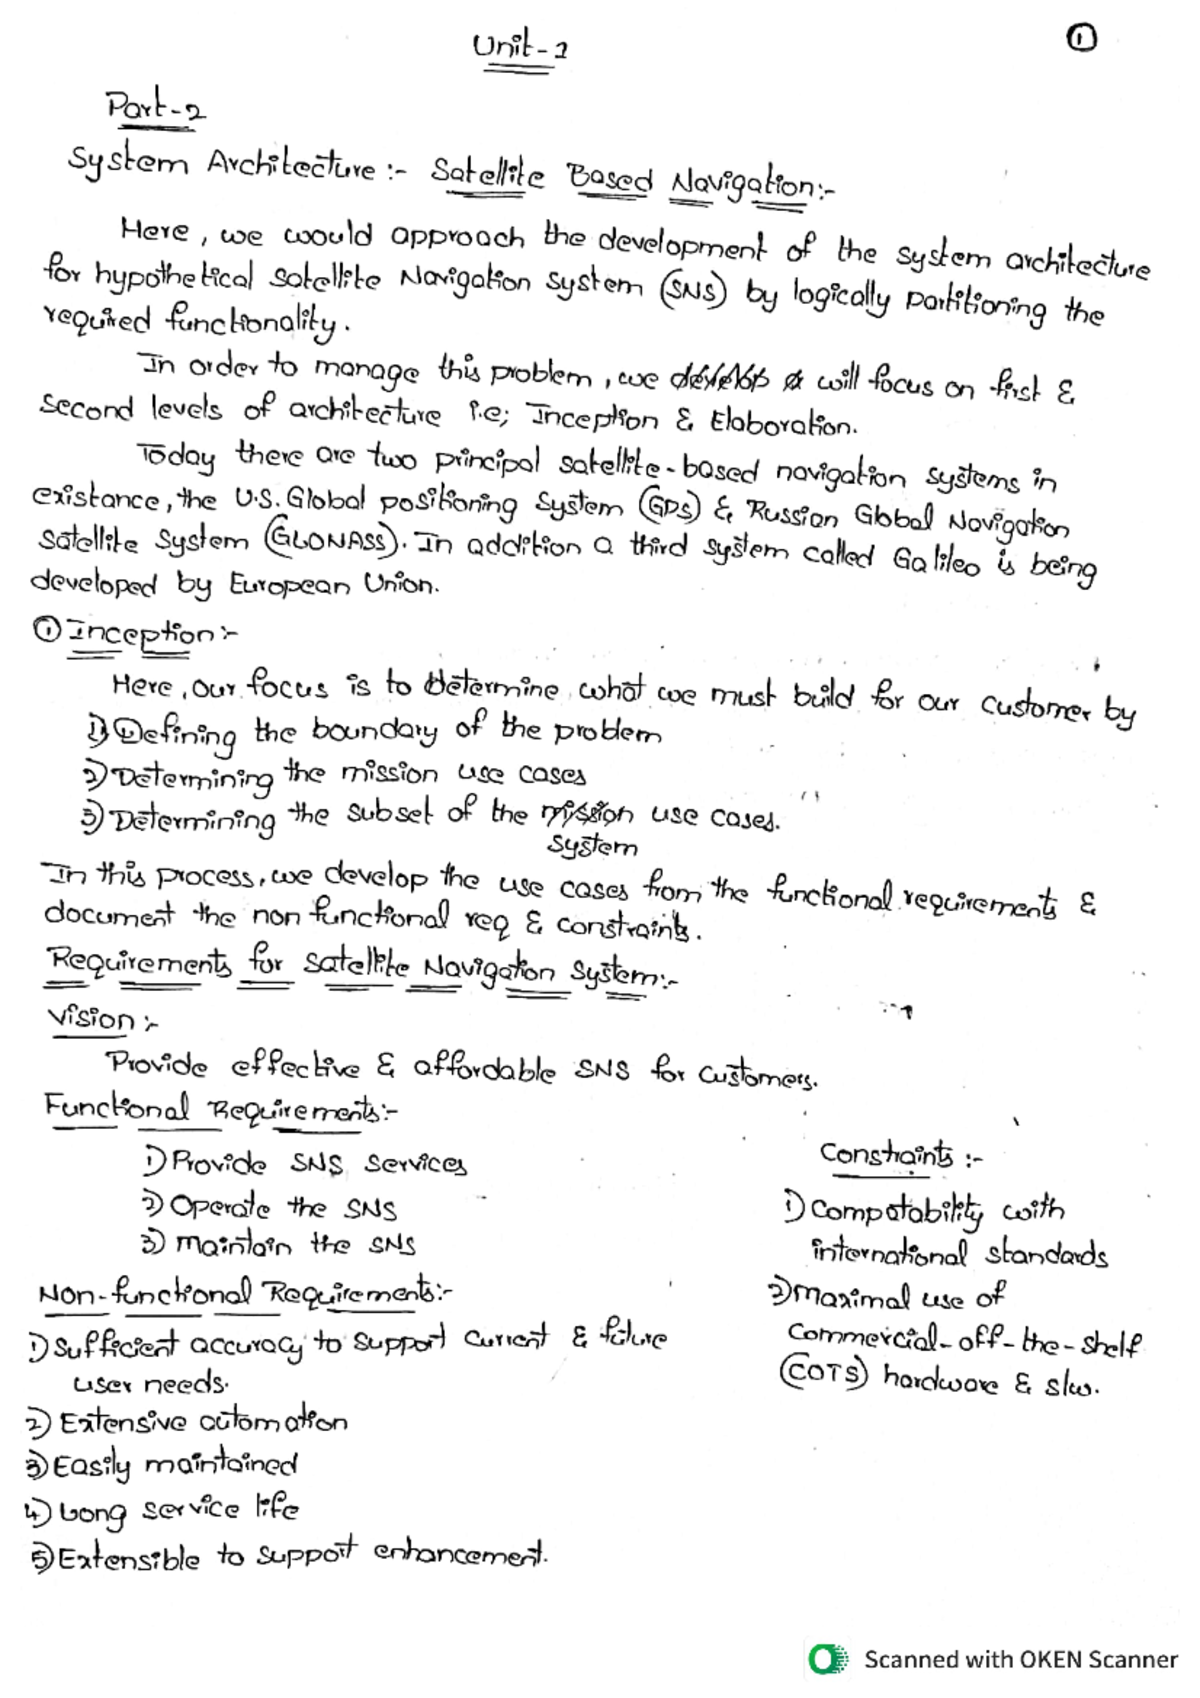 Unit-1
1
Part-2
System Architecture :- Satellite Based Navigation:-
Here, we would approach the development of the system architecture
for hypothetical satellite Navigation system (SNS) by logically partitioning the
required functionality.
In order to manage this problem, we will focus on first &
second levels of architecture i.e; Inception & Elaboration.
Today there are two principal satellite-based navigation systems in
existance, the U.S. Global positioning System (GPS) & Russian Global Navigation
Satellite System (GLONASS). In addition a third system called Galileo is being
developed by European Union.
① Inception :-
Here, our focus is to determine what we must build for our customer by
1) Defining the boundary of the problem
2) Determining the mission use cases
3) Determining the subset of the mission use cases.
system
In this process, we develop the use cases from the functional requirements &
document the non functional req & constraints.
Requirements for satellite Navigation System:-
Vision :-
Provide effective & affordable SNS for customers.
Functional Requirements:-
1) Provide SNS services
2) Operate the SNS
3) maintain the SNS
Non-functional Requirements:-
1) Sufficient accuracy to support current & future
user needs.
2) Extensive automation
3) Easily maintained
4) Long service life
5) Extensible to support enhancement.
Constraints :-
1) Compatability with
international standards
2) Maximal use of
commercial-off-the-shelf
(COTS) hardware & s/w.
Scanned with OKEN Scanner